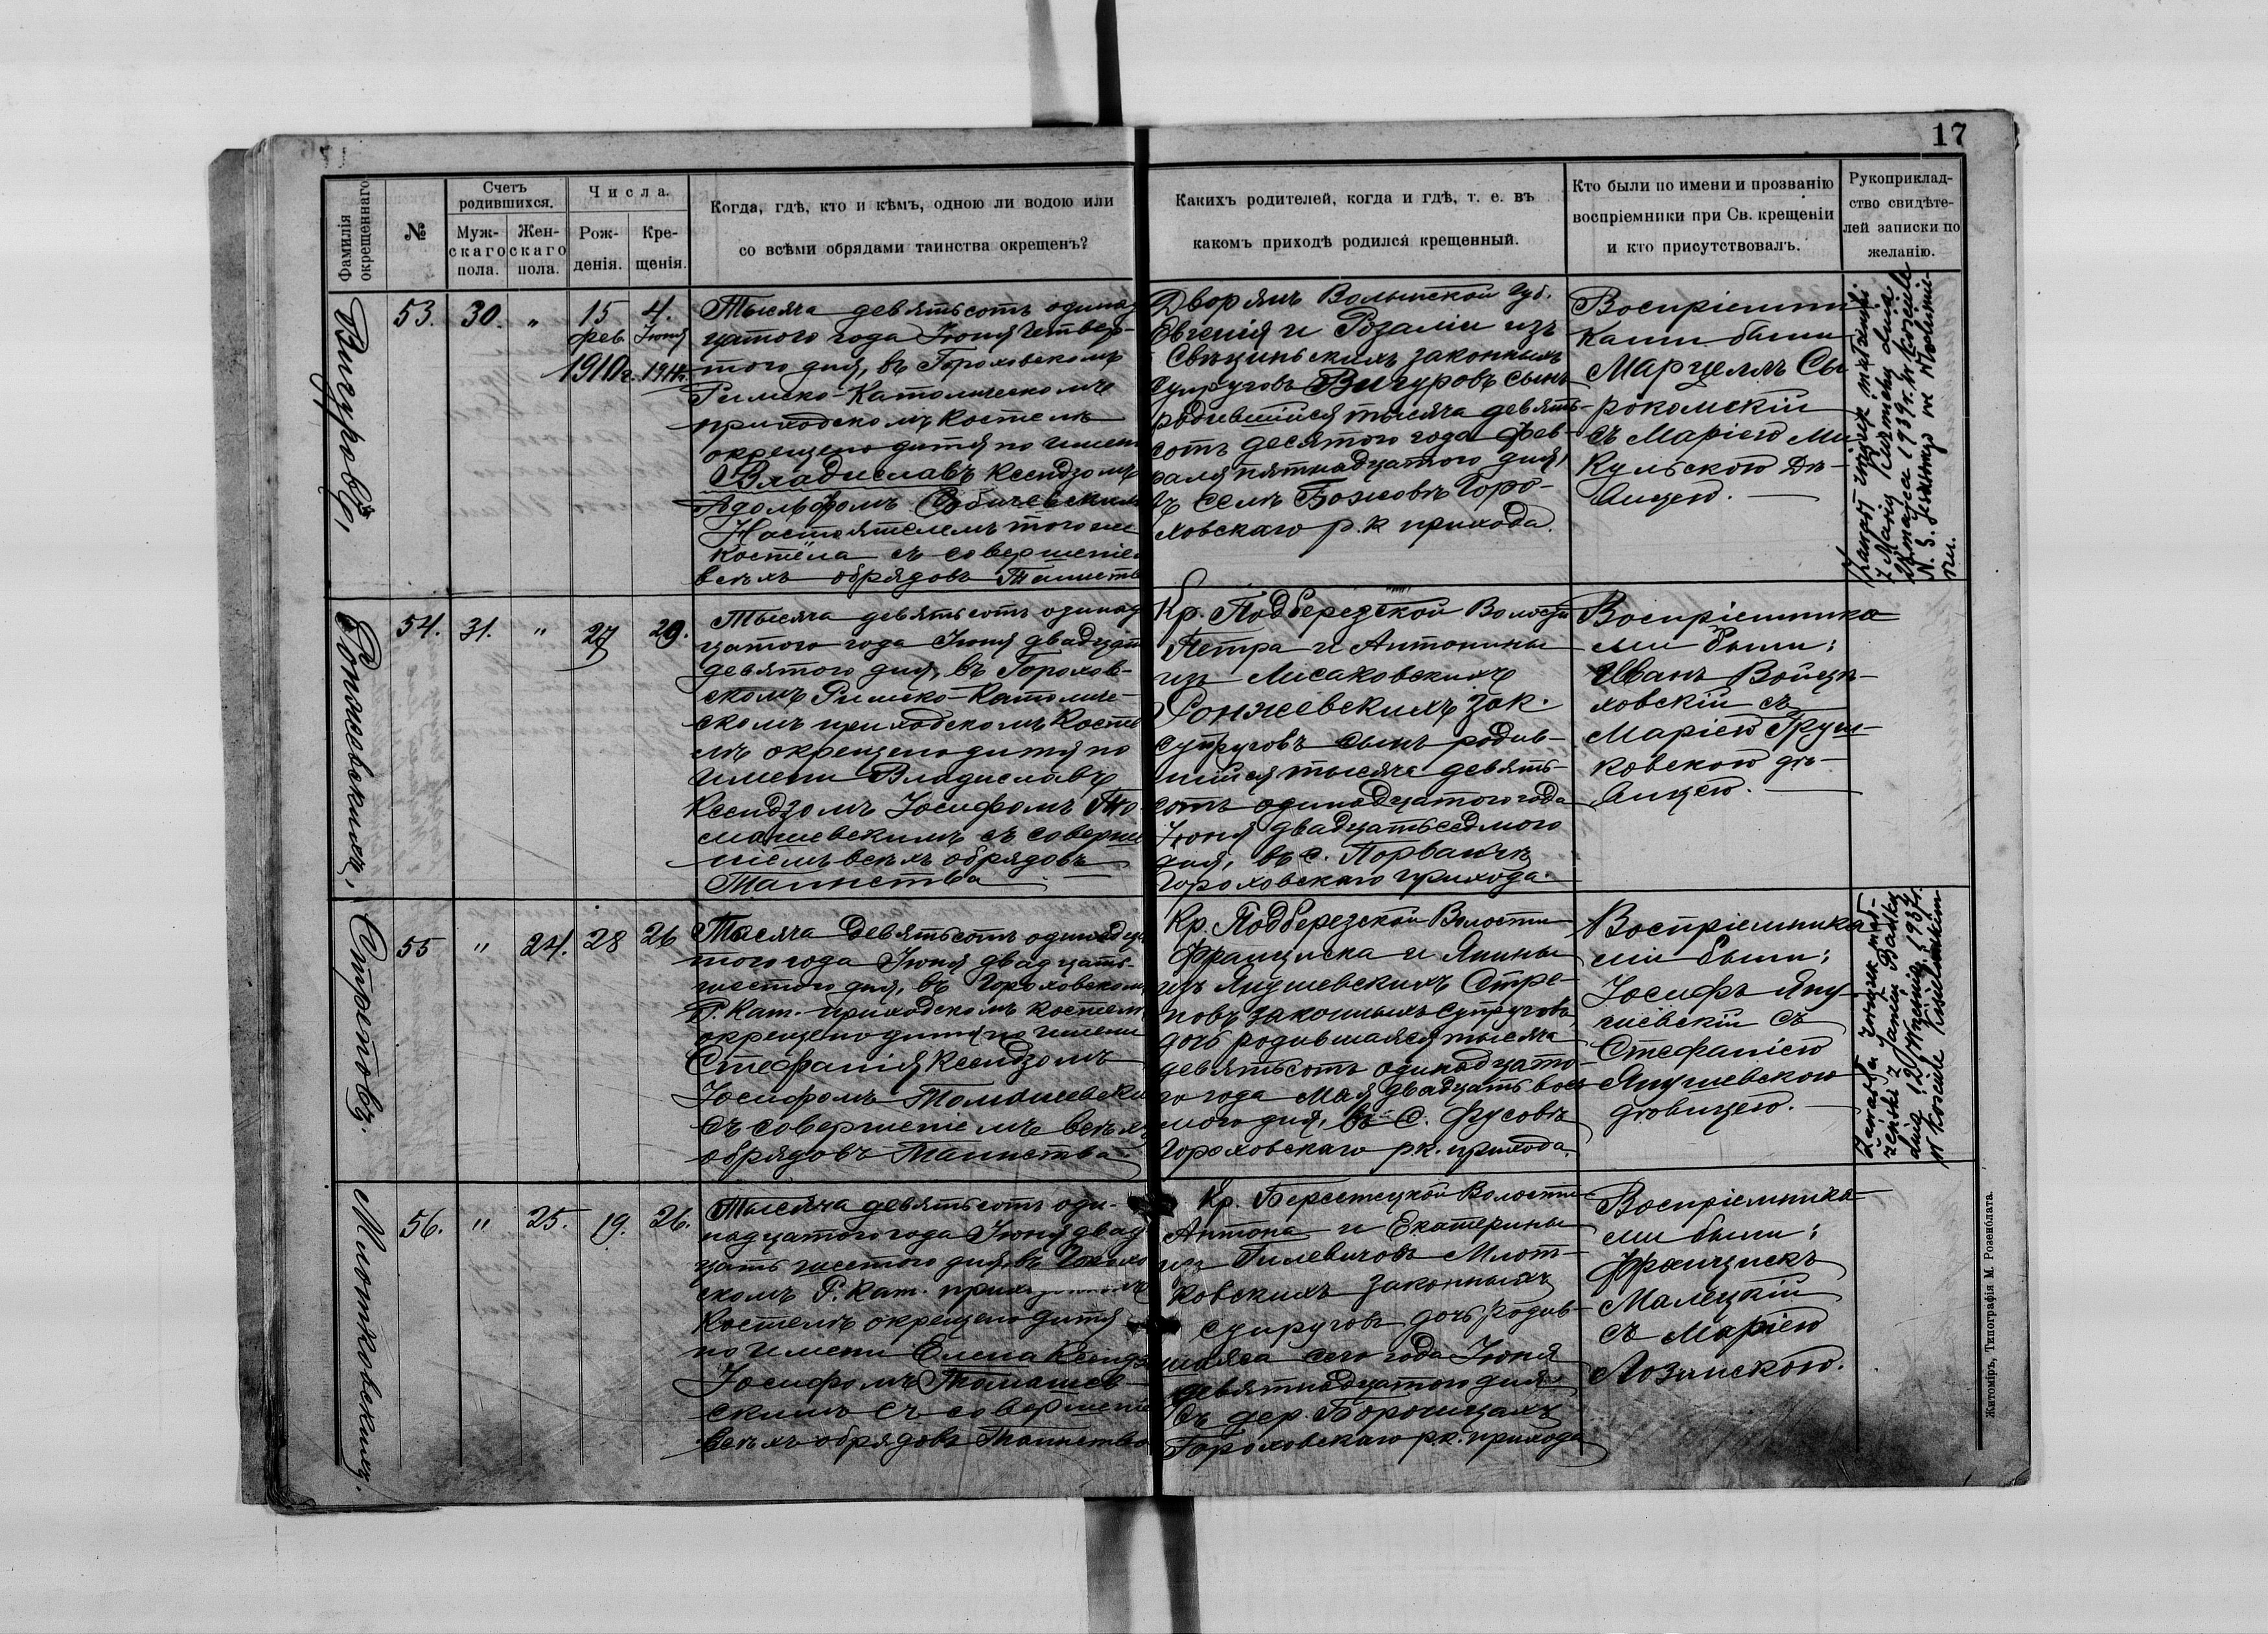 17
Фамилія окрещеннаго
№
Счетъ родившихся.
Муж-
скаго
пола.
Жен-
скаго
пола.
Числа.
Рож-
денія.
Кре-
щенія.
Когда, гдѣ, кто и кѣмъ, одною ли водою или
со всѣми обрядами таинства окрещенъ?
Какихъ родителей, когда и гдѣ, т. е. въ
какомъ приходѣ родился крещенный.
Кто были по имени и прозванію
воспріемники при Св. крещеніи
и кто присутствовалъ.
Рукоприклад-
ство свидѣте-
лей записки по
желанію.
Вигуровъ,
53. 30. " 15 фев. 1910г. 4. Іюня 1911г.
Тысяча девятьсотъ одинад
цатого года Іюня четвер-
того дня, въ Гороховскомъ
Римско-Католическомъ
приходскомъ костелѣ
окрещено дитя по имени
Владиславъ Ксендзомъ
Адольфомъ
Настоятелемъ того же
костела съ совершеніе
всѣхъ обрядовъ Таинств
Дворянъ Волынской Губ.
Евгенія и Розаліи изъ
законныхъ
супруговъ Вигуровъ сынъ
родившійся тысяча девять-
сотъ десятого года Фев-
раля пятнадцатого дня,
въ селѣ Божовѣ Горо-
ховскаго р.к прихода.
Воспріемни
ками были
Марцеллъ Сы
рокомскій
съ Маріею Ми
кульскою дѣ-
вицею.
Zawarł związek małżeński
z Marią
maja 1939 r. w kościele
N. S. Jezusego we Włodzimie-
rzu.
Ронжевскихъ,
54. 31. " 27 29.
Тысяча девятьсотъ одинад
цатого года Іюня двадцать
девятого дня, въ Горохов-
скомъ Римско-Католиче-
скомъ приходскомъ косте
лѣ окрещено дитя по
имени Владиславъ
Ксендзомъ Іосифомъ То-
машевскимъ съ соверше
ніемъ всѣхъ обрядовъ
Таинства
Кр. Подберезской Волости
Петра и Антонины
из Лисаковскихъ
Ронжевскихъ зак.
супруговъ сынъ родив-
шійся тысяча девять-
сотъ одинадцатого года
Іюня двадцать седмого
дня, въ с. Порванчѣ
Гороховскаго прихода.
Воспріемника
ми были:
Иванъ Войцѣ-
ховскій съ
Маріею Груш-
ковскою дѣ-
вицею.
Стреповъ.
55 " 24. 28 26
Тысяча девятьсотъ одинадца
того года Іюня двадцать
шестого дня, въ Гороховскомъ
Р. Кат. приходскомъ костелѣ
окрещено дитя по имени
Стефанія Ксендзомъ
Іосифомъ Томашевски
съ совершеніемъ всѣхъ
обрядовъ Таинства.
Кр. Подберезской Волости
Франциска и Янины
изъ Янушевскихъ Стре-
повъ законныхъ супруговъ
дочь родившаяся тысяча
девятьсотъ одинадцато-
го года Мая двадцать вось
мого дня, въ с. Фусовѣ
Гороховскаго р.к. прихода.
Воспріемника
ми были:
Іосифъ Яну-
шевскій съ
Стефаніею
Янушевскою
дѣвицею.
Zawarła związek mał-
żeński z Janem
dnia 12 Września 1937 r.
w kościele Kisielińskim
Млотковскихъ.
56. " 25. 19. 26.
Тысяча девятьсотъ оди-
надцатого года Іюня двад
цать шестого дня, въ Горохо
скомъ Р. Кат. приходскомъ
костелѣ окрещено дитя
по имени Елена Ксендз
Іосифомъ Томашев-
скимъ съ совершені
всѣхъ обрядовъ Таинства
Кр. Берестецкой Волости
Антона и Екатерины
из Гилевичовъ Млот-
ковскихъ законныхъ
супруговъ дочь родив-
шаяся сего года Іюня
девятнадцатого дня
въ дер. Борочицахъ
Гороховскаго р.к. прихода
Воспріемника-
ми были:
Францискъ
Малецкій
съ Маріею
Лозинскою.
Житоміръ, Типографія М. Розенблата.